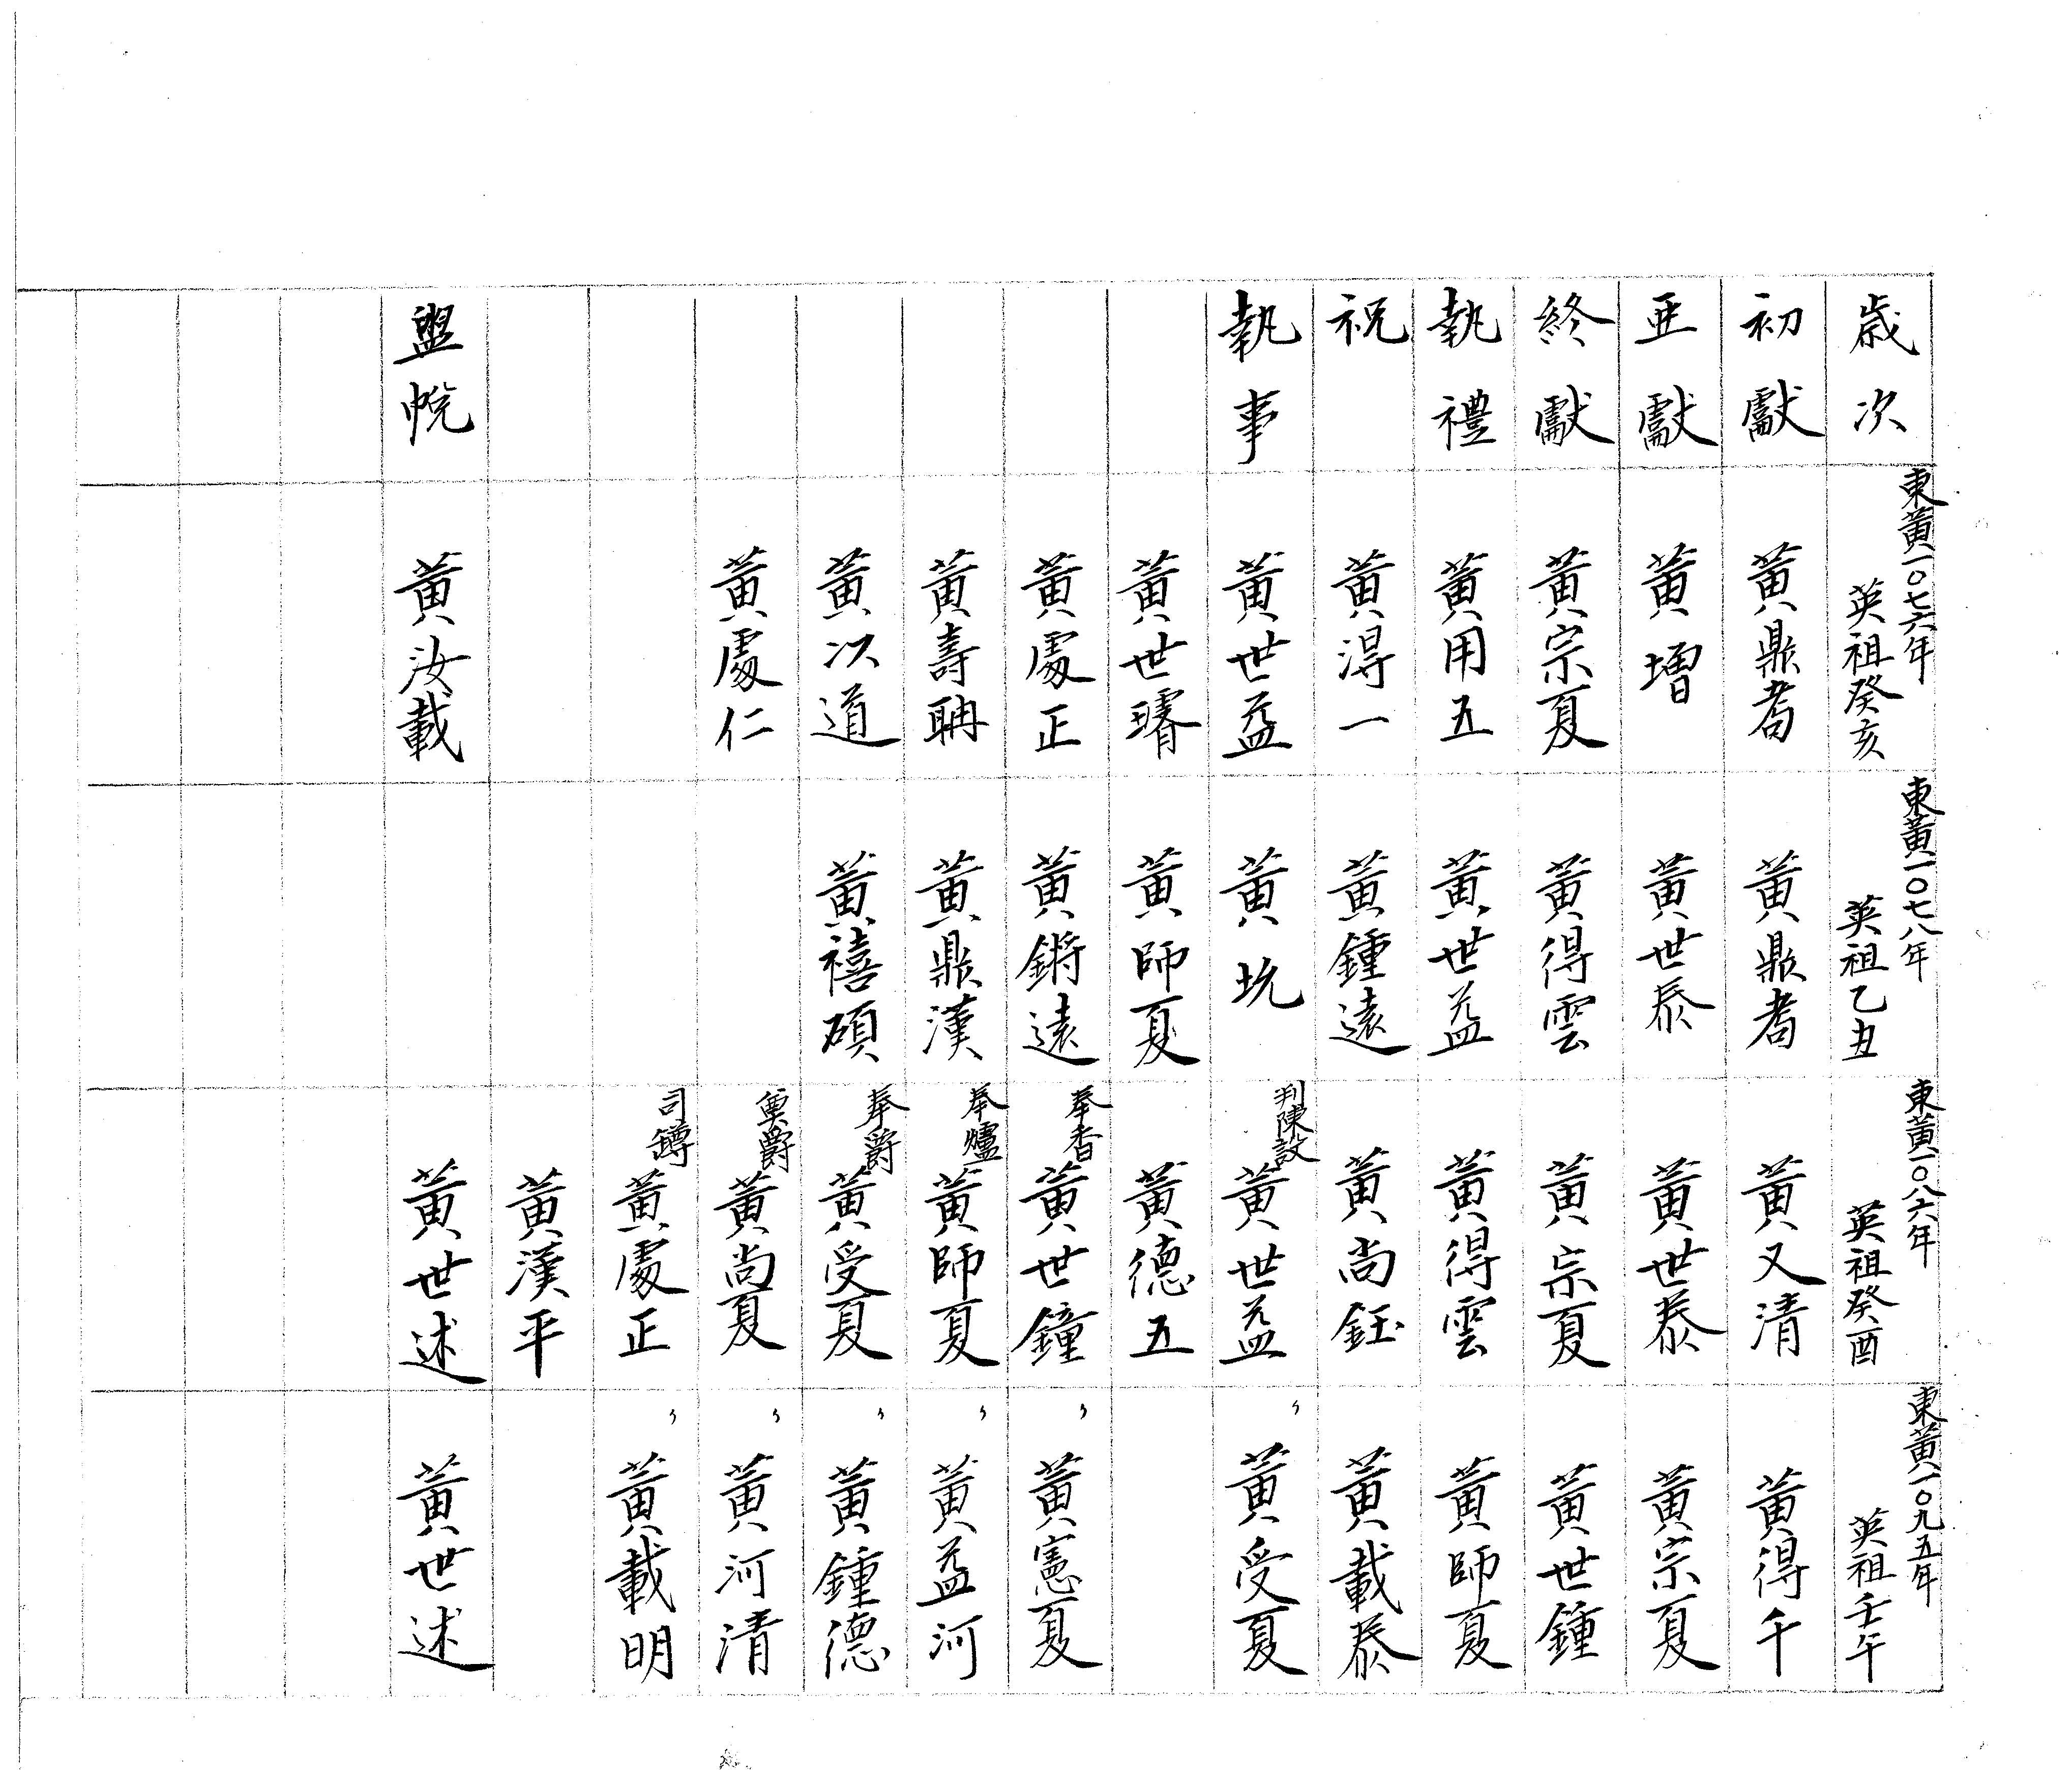 歲次
東黃一〇七六年
英祖癸亥
東黃一〇七八年
英祖乙丑
東黃一〇八六年
英祖癸酉
東黃一〇九五年
英祖壬午
初獻
黃鼎耇
黃鼎耇
黃又清
黃得千
亞獻
黃增
黃世泰
黃世泰
黃宗夏
終獻
黃宗夏
黃得雲
黃宗夏
黃世鍾
執禮
黃用五
黃世益
黃得雲
黃師夏
祝
黃得一
黃鍾遠
黃尚鈺
黃載泰
執事
黃世益
黃坑
判陳設
黃世益
〃
黃受夏
黃世璿
黃師夏
黃德五
黃處正
黃鏘遠
奉香
黃世鐘
〃
黃憲夏
黃壽聃
黃鼎漢
奉爐
黃師夏
〃
黃益河
黃以道
黃禧碩
奉爵
黃受夏
〃
黃鍾德
黃處仁
奠爵
黃尚夏
〃
黃河清
司罇
黃處正
〃
黃載明
黃漢平
盥帨
黃汝載
黃世述
黃世述